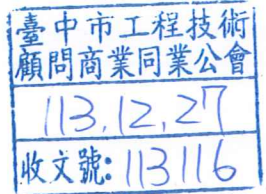 臺中市工程技術
顧問商業同業公會
113.12.27
收文號:113116